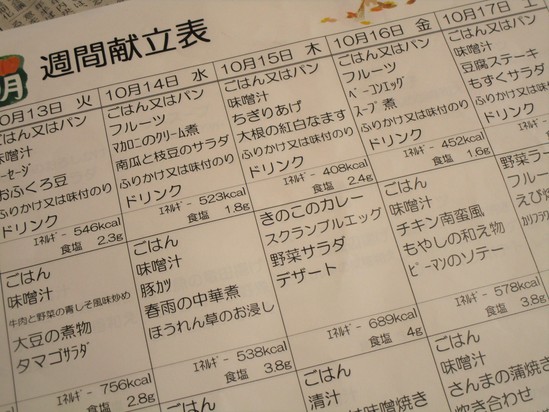 週間献立表
月
10月13日 火
ごはん又はパン
味噌汁
ソーセージ
おふくろ豆
ふりかけ又は味付のり
ドリンク
ｴﾈﾙｷﾞｰ 546kcal
食塩 2.3g
10月14日 水
ごはん又はパン
フルーツ
ﾏｶﾛﾆのｸﾘｰﾑ煮
南瓜と枝豆のサラダ
ふりかけ又は味付のり
ドリンク
ｴﾈﾙｷﾞｰ 523kcal
食塩 1.8g
10月15日 木
ごはん又はパン
味噌汁
ちぎりあげ
大根の紅白なます
ふりかけ又は味付のり
ドリンク
ｴﾈﾙｷﾞｰ 408kcal
食塩 2.4g
10月16日 金
ごはん又はパン
フルーツ
ﾍﾞｰｺﾝｴｯｸﾞ
ｽｰﾌﾟ煮
ふりかけ又は味付のり
ドリンク
ｴﾈﾙｷﾞｰ 452kcal
食塩 1.6g
10月17日 土
ごはん又はパン
味噌汁
豆腐ステーキ
もずくサラダ
ふりかけ又は味付のり
ドリンク
ごはん
味噌汁
牛肉と野菜の青しそ風味炒め
大豆の煮物
タマゴｻﾗﾀﾞ
ｴﾈﾙｷﾞｰ 756kcal
食塩 2.8g
ごはん
味噌汁
豚ｶﾂ
春雨の中華煮
ほうれん草のお浸し
ｴﾈﾙｷﾞｰ 538kcal
食塩 3.8g
きのこのカレー
スクランブルエッグ
野菜サラダ
デザート
ｴﾈﾙｷﾞｰ 689kcal
食塩 4g
ごはん
味噌汁
チキン南蛮風
もやしの和え物
ﾋﾟｰﾏﾝのソテー
ｴﾈﾙｷﾞｰ 578kcal
食塩 3.8g
野菜ラー
フルー
えび焼
ｶﾘﾌﾗﾜ
ごはん
ごはん
清汁
味噌焼き
ごはん
味噌汁
さんまの蒲焼き
炊き合わせ